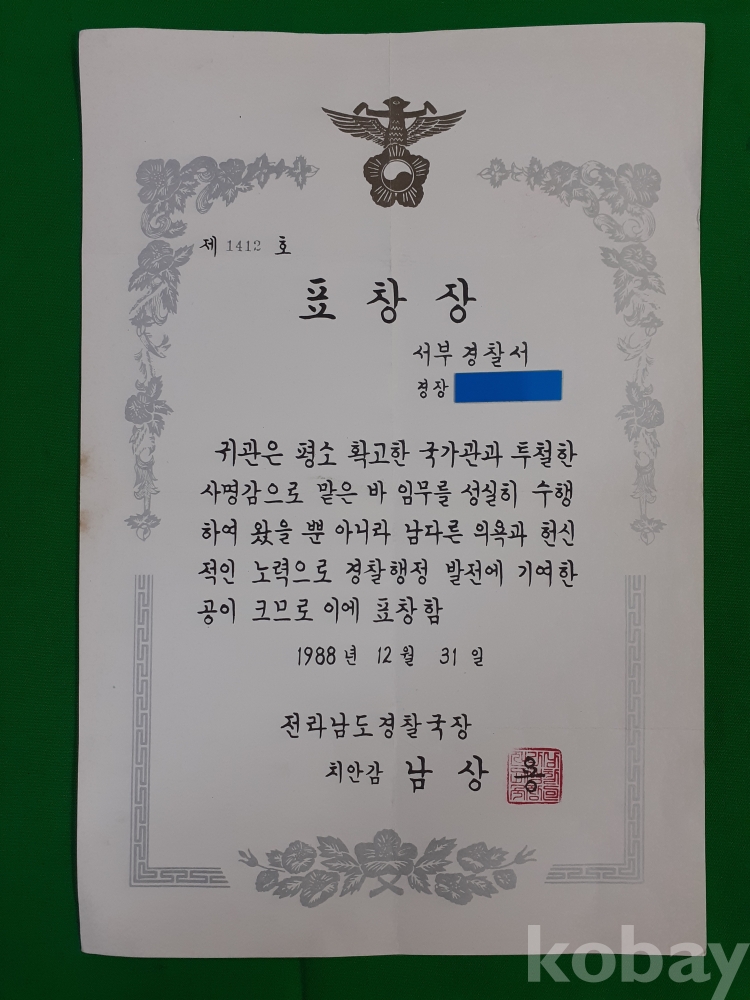 제 1412 호
표 창 장
서부 경찰서
경장
귀관은 평소 확고한 국가관과 투철한
사명감으로 맡은 바 임무를 성실히 수행
하여 왔을 뿐 아니라 남다른 의욕과 헌신
적인 노력으로 경찰행정 발전에 기여한
공이 크므로 이에 표창함
1988 년 12 월 31 일
전라남도경찰국장
치안감 남 상 용
kobay